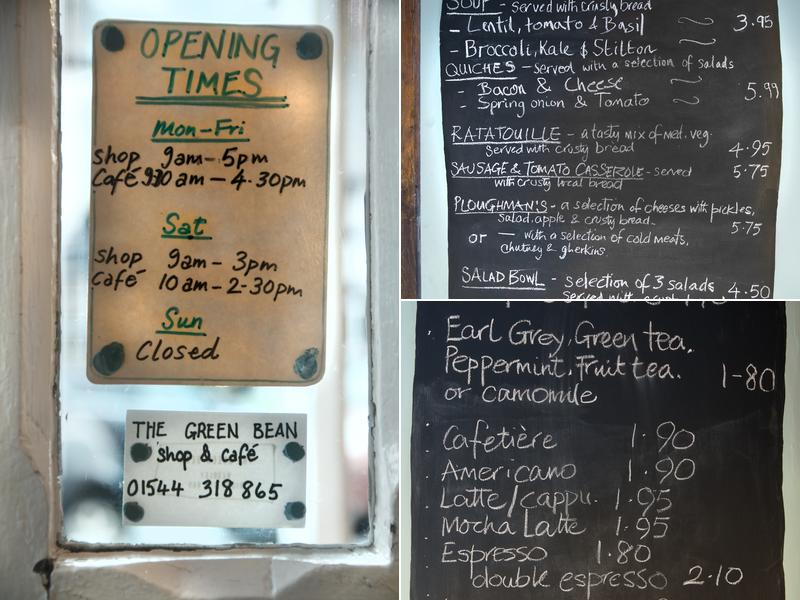 OPENING
TIMES
Mon-Fri
Shop 9am-5pm
Café 930am-4.30pm
Sat
Shop 9am-3pm
Café 10am-2-30pm
Sun
Closed
THE GREEN BEAN
shop & café
01544 318 865
SOUP - served with crusty bread
- Lentil, tomato & Basil ~ 3.95
- Broccoli, Kale & Stilton ~
QUICHES - served with a selection of salads
- Bacon & Cheese ~ 5.99
- Spring onion & Tomato ~
RATATOUILLE - a tasty mix of med. veg.
Served with crusty bread 4.95
SAUSAGE & TOMATO CASSEROLE - served 5.75
with crusty local bread
PLOUGHMAN'S - a selection of cheeses with pickles,
Salad, apple & crusty bread. 5.75
or - with a selection of cold meats,
chutney & gherkins
SALAD BOWL - selection of 3 salads 4.50
Served with
Earl Grey, Green tea.
Peppermint, Fruit tea. 1-80
or camomile
Cafetière 1.90
Americano 1.90
Latte/cappu. 1.95
Mocha Latte 1.95
Espresso 1.80
double espresso 2.10